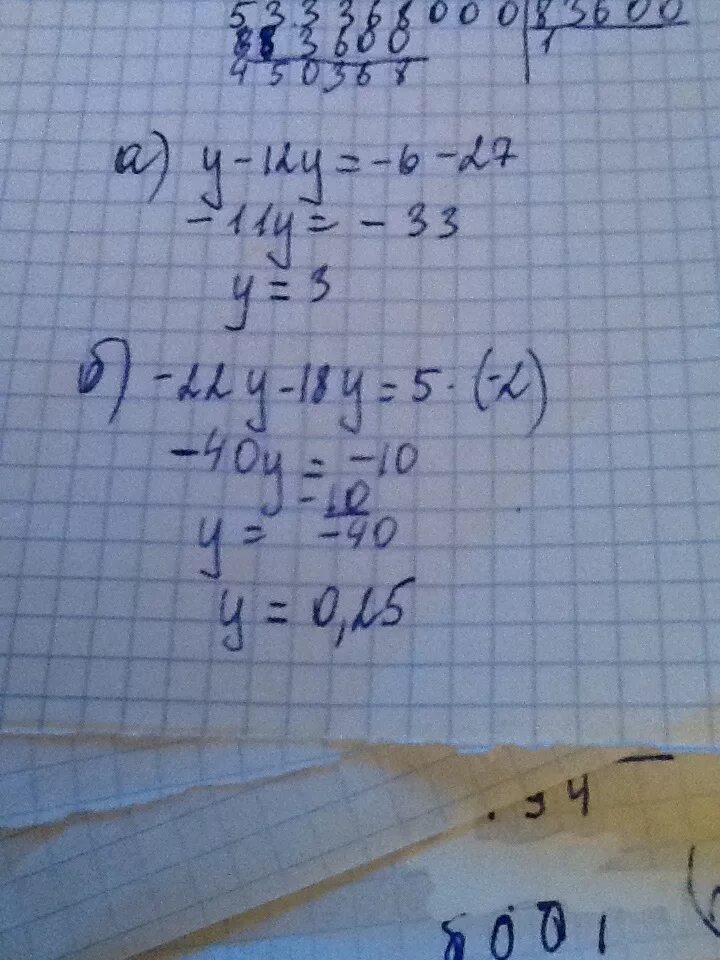 53.3368000 83600
3600 1
450368
а) y-12y=-6-27
-11y=-33
y=3
б) -22y-18y=5·(-2)
-40y=-10
y= -10
-40
y=0,25